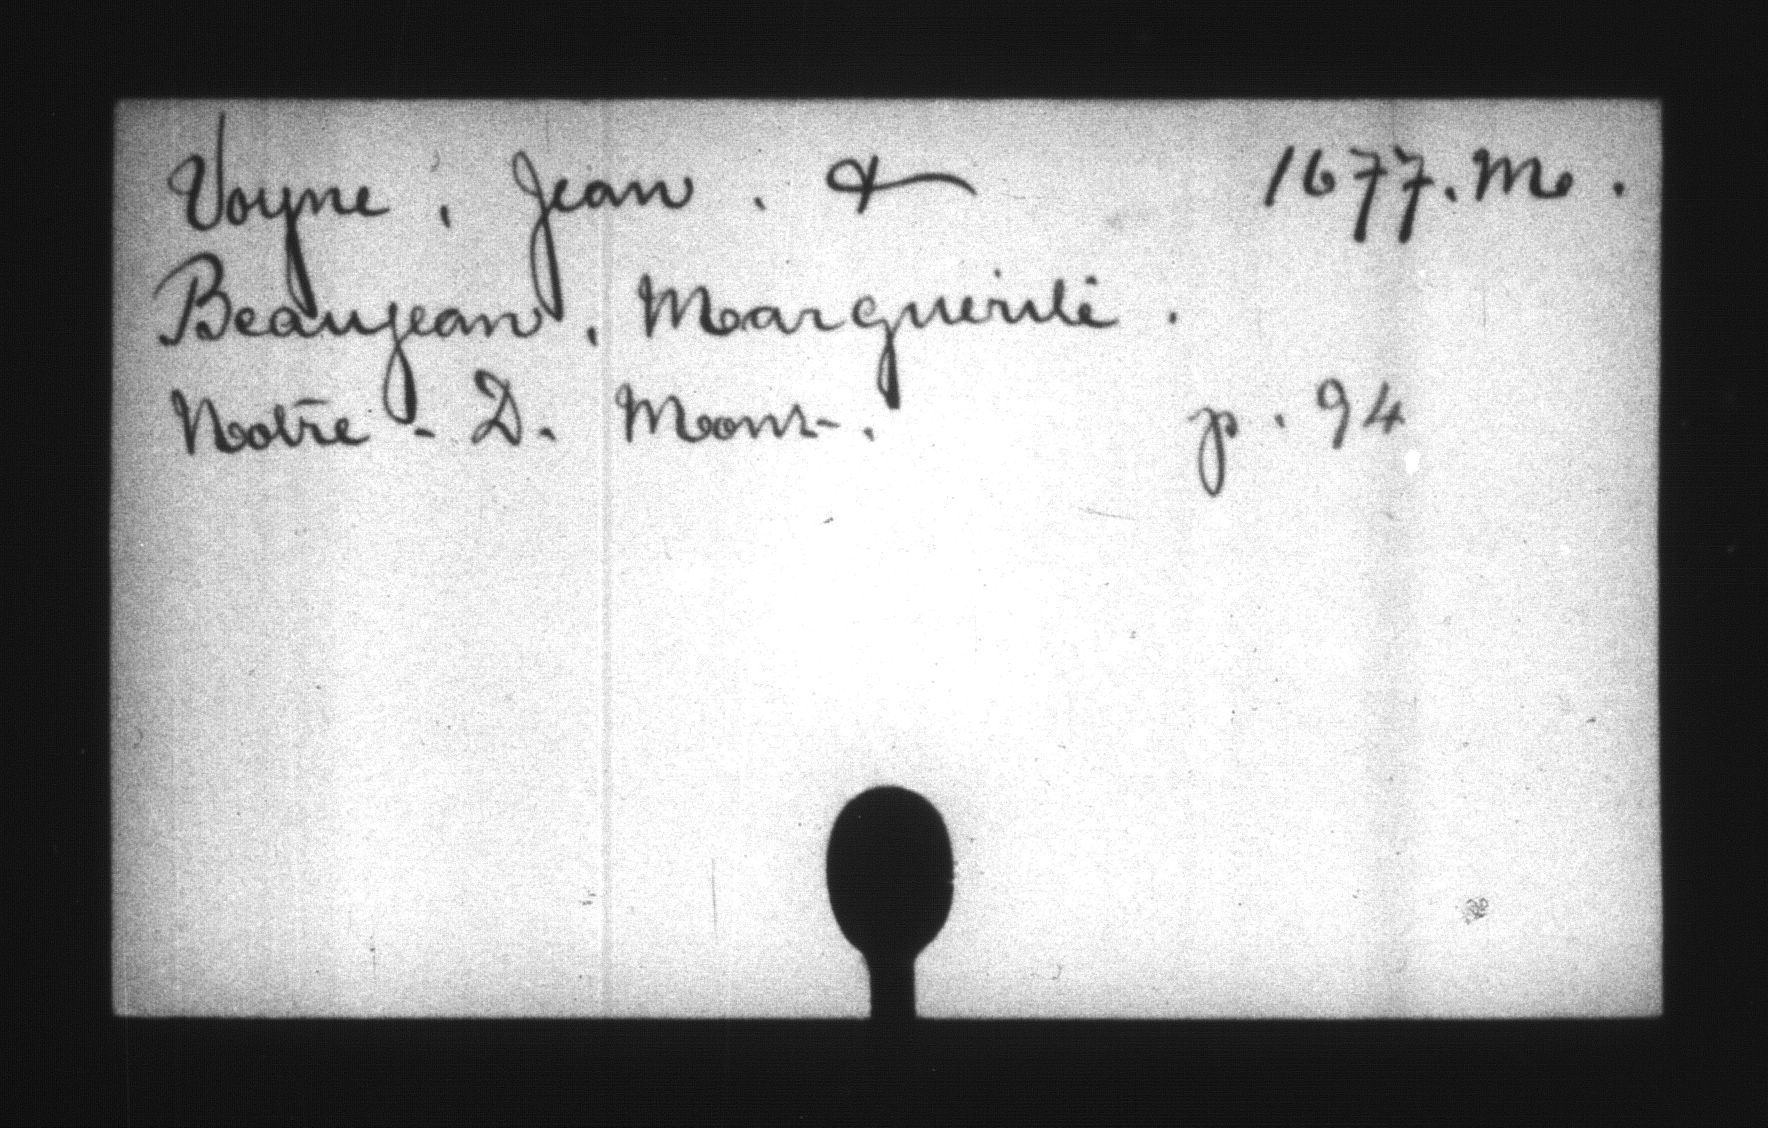 Voyne, Jean. & 1677. M.
Beaujean, Marguerite.
Notre-D. Mons-. p. 94